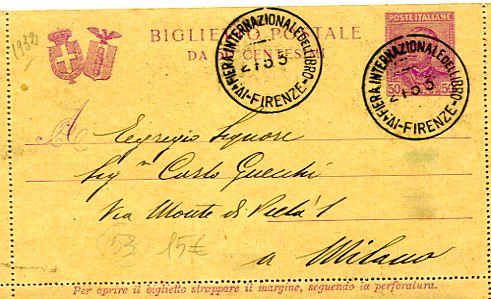 1932
BIGLIETTO POSTALE
DA CENTESIMI
POSTE ITALIANE
50 50
IVª FIERA INTERNAZIONALE DEL LIBRO - FIRENZE -
2155
IVª FIERA INTERNAZIONALE DEL LIBRO - FIRENZE -
2155
A Egregio Signore
Sig. Carlo Guecchi
Via Monte di Pietà 1
(53) 15€
a Milano
Per aprire il biglietto strappare il margine, seguendo la perforatura.